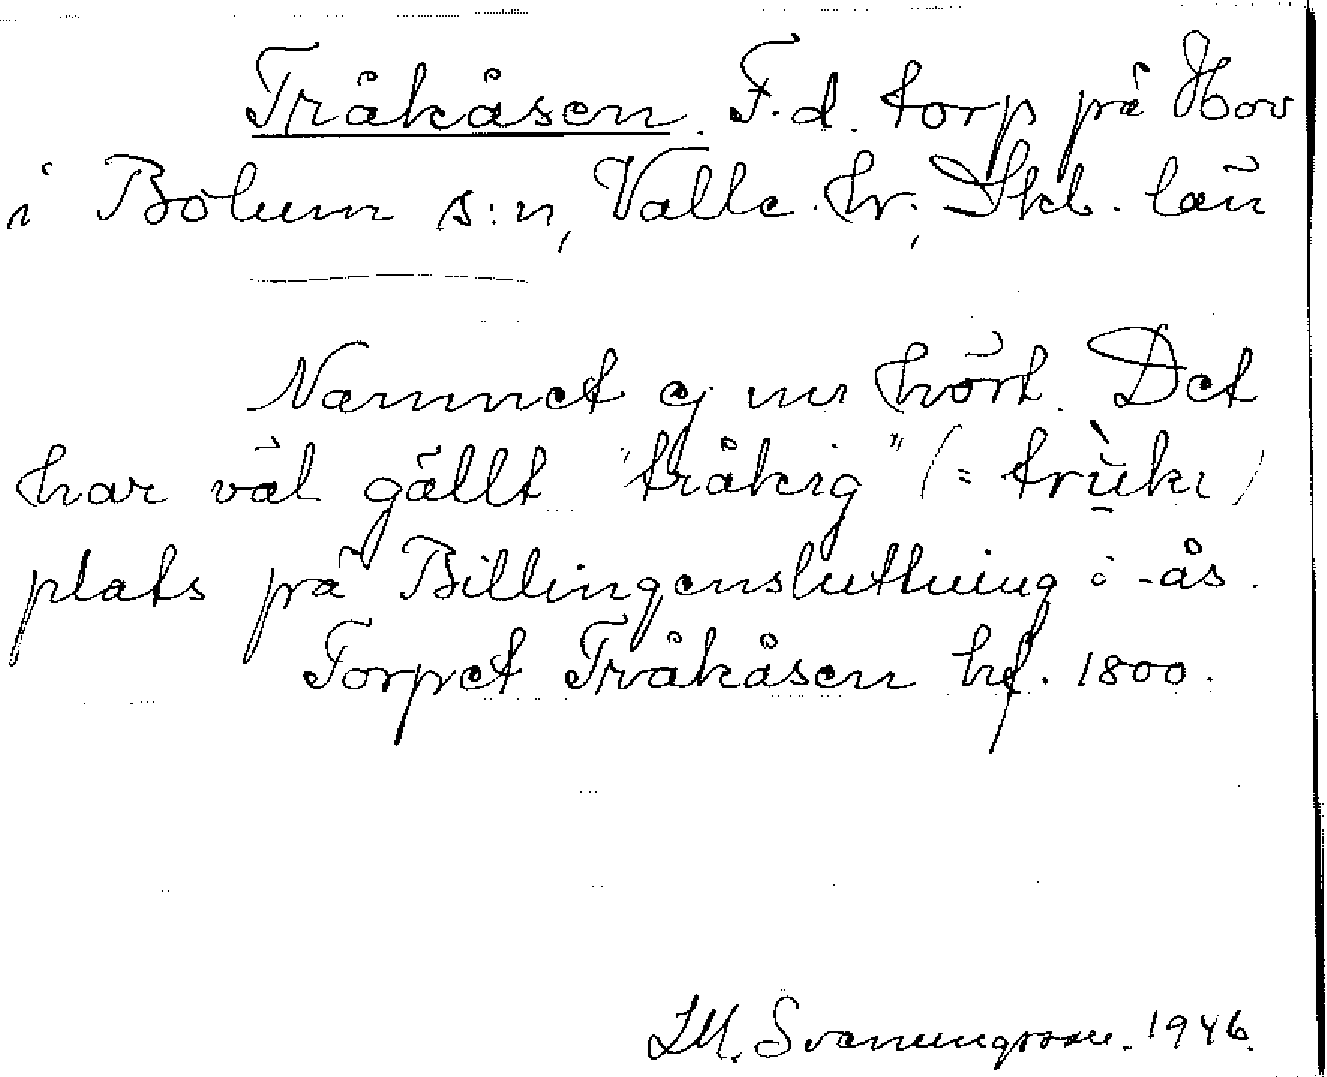 Tråkåsen. F.d. torp på Hov
i Bolum s:n, Valle hr, Skb. län
Namnet ej nu hört. Det
har väl gällt "tråkig" (= trùkı)
plats på Billingensluttning i -ås.
Torpet Tråkåsen hf. 1800.
Svenungsson. 1946.